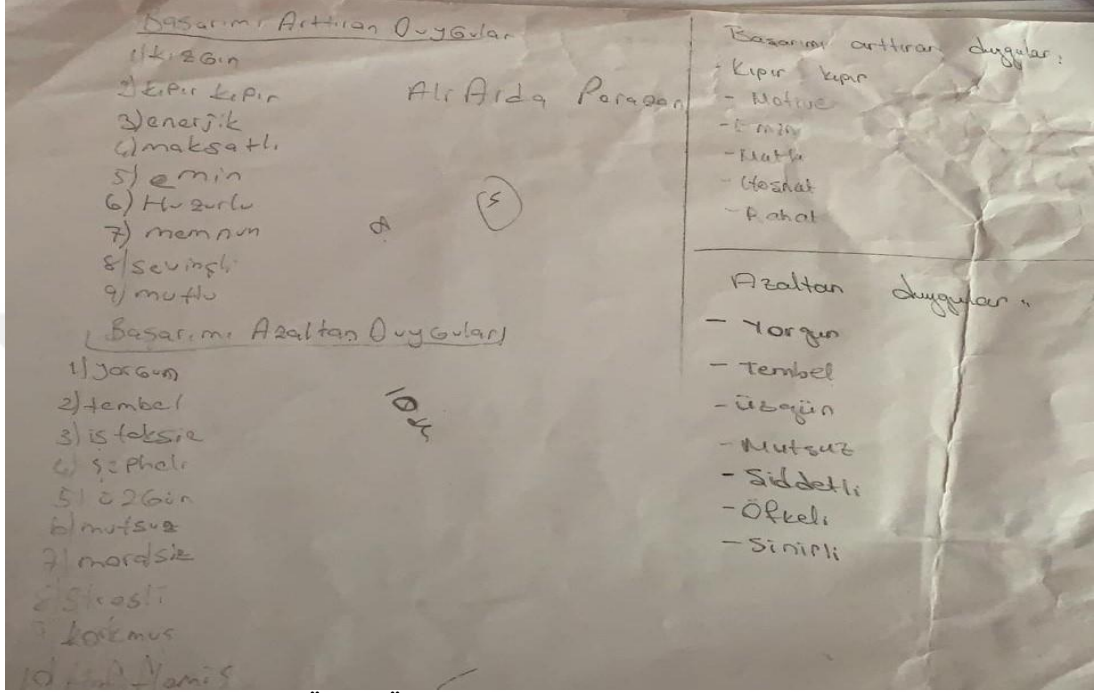 Başarımı Arttıran Duygular
1) kızgın
2) kıpır kıpır
Ali Arda
3) enerjik
4) maksatlı
5) emin
6) Huzurlu
5
7) memnun
8) sevinçli
9) mutlu
Başarımı Azaltan Duygular
1) yorgun
2) tembel
3) isteksiz
4) şüpheli
5) üzgün
6) mutsuz
7) moralsiz
8) Stresli
9 korkmuş
10
Başarımı arttıran duygular:
- Kıpır kıpır
- Motive
- Emin
- Mutlu
- Hoşnut
- Rahat
Azaltan duygular:
- Yorgun
- Tembel
- üzgün
- Mutsuz
- Şiddetli
- Öfkeli
- Sinirli